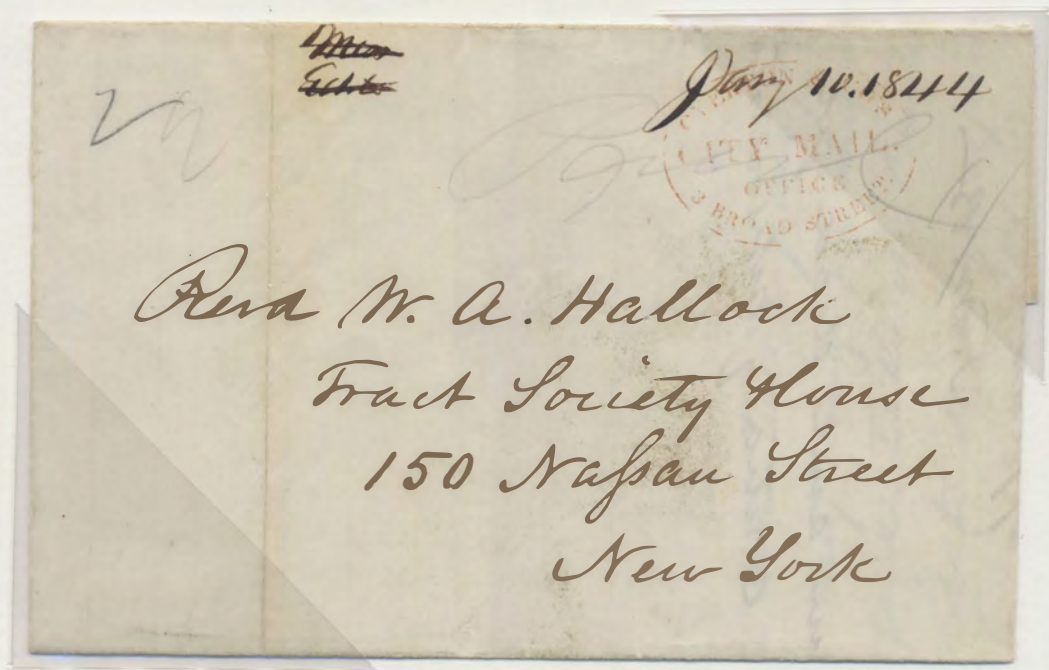 Jany 10. 1844
CITY MAIL.
OFFICE
2 BROAD STREET.
Revd W. A. Hallock
Tract Society House
150 Naſsau Street
New York